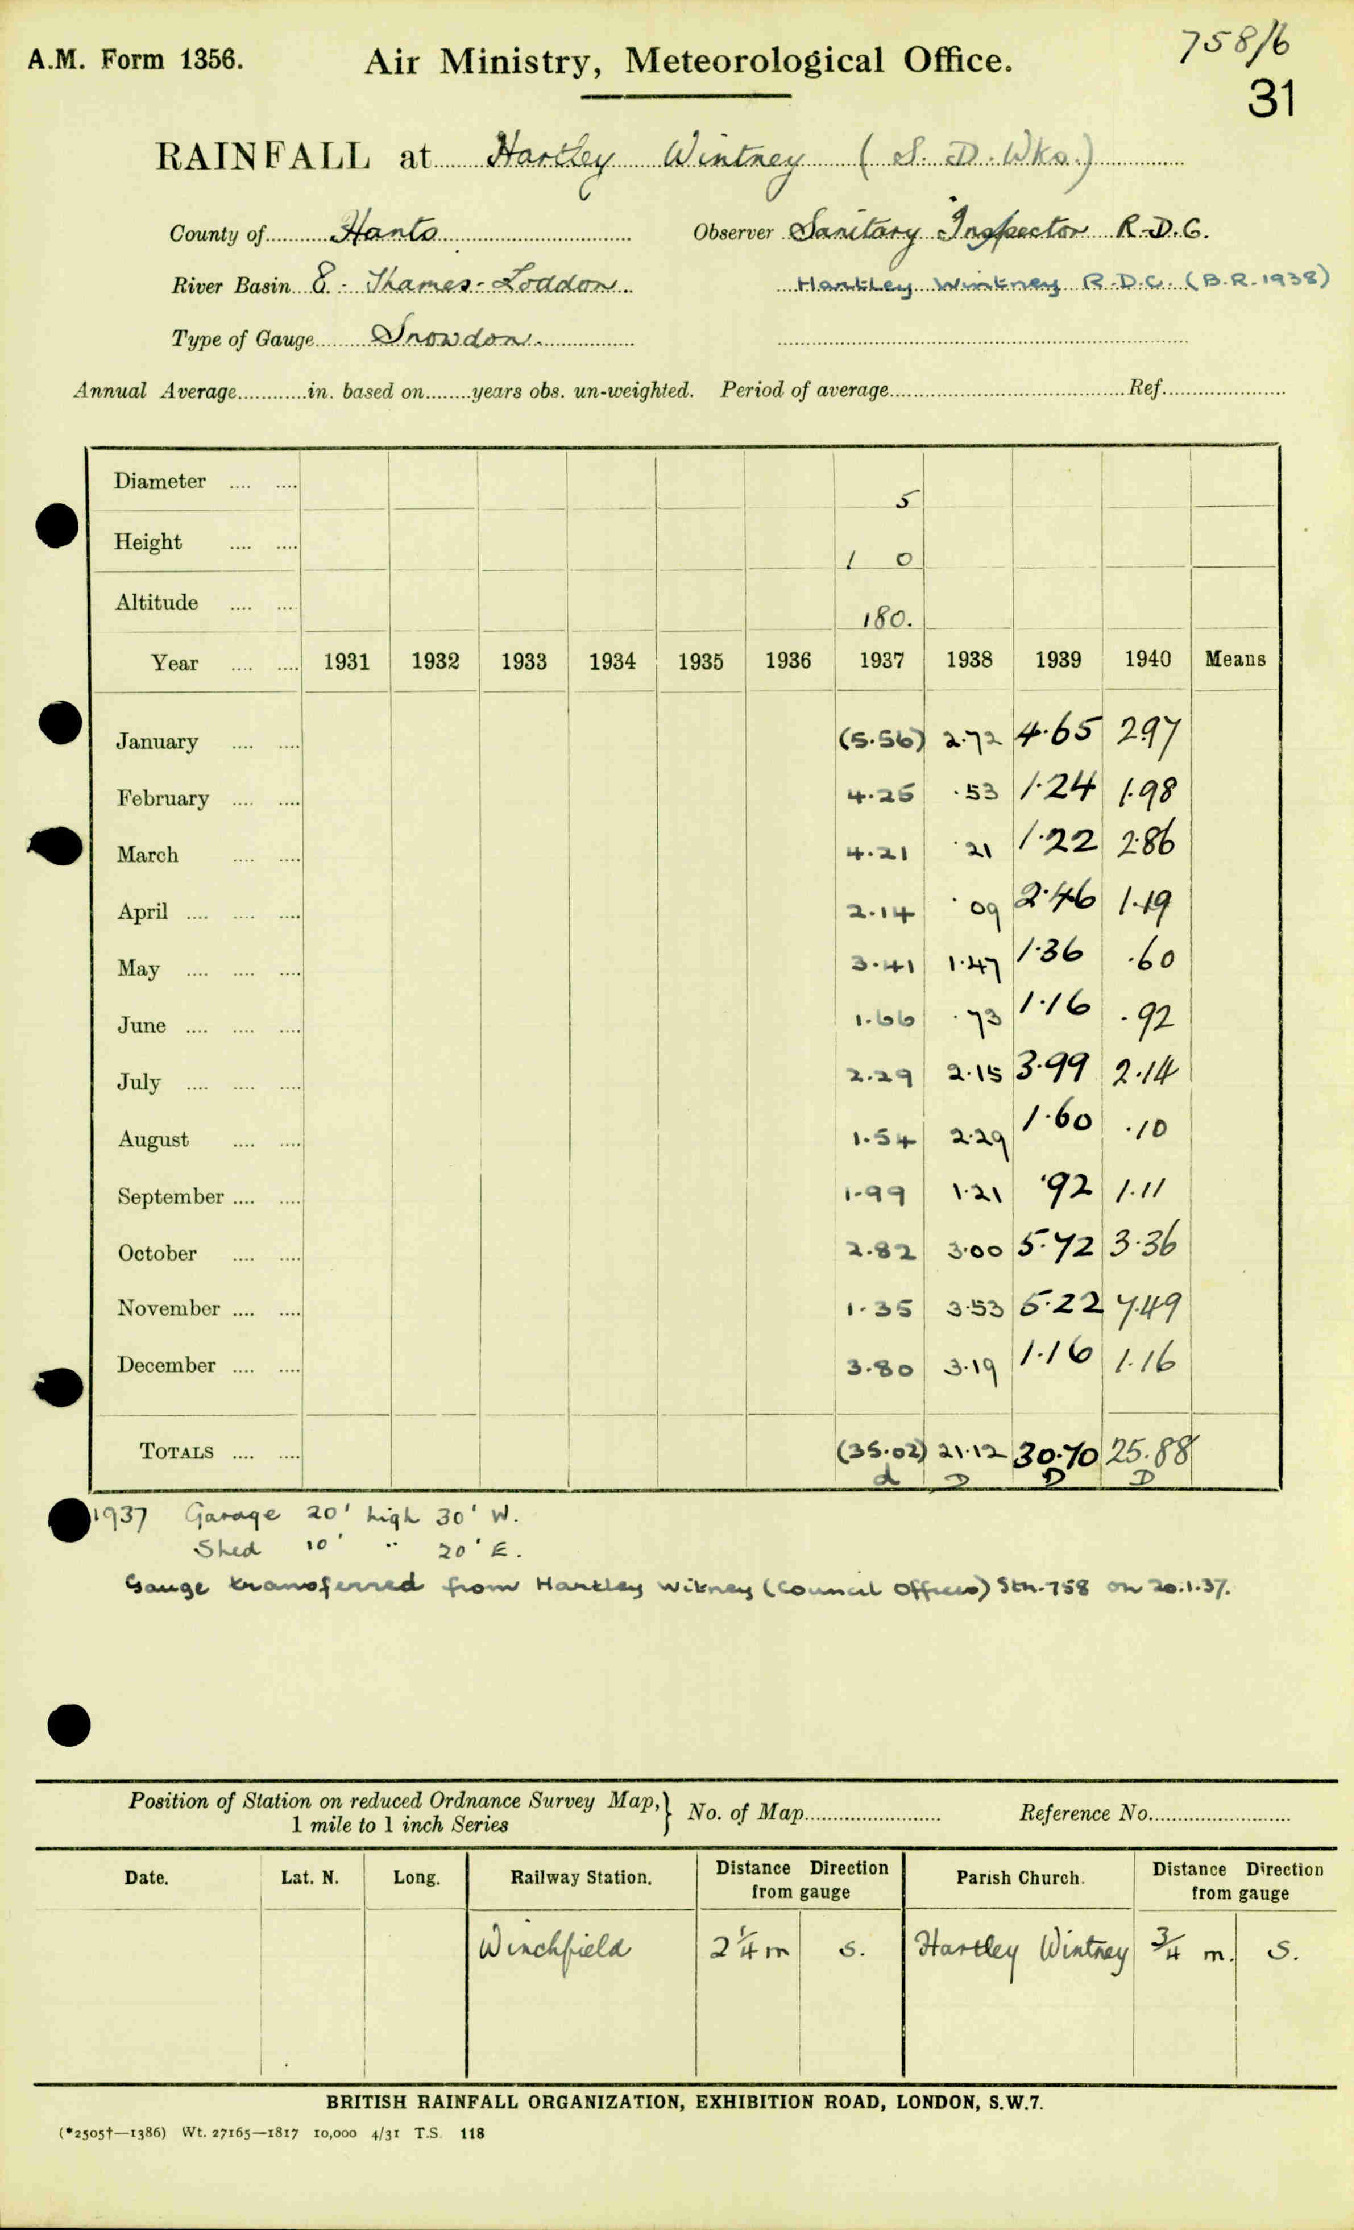 758/6
A.M. Form 1356. Air Ministry, Meteorological Office.
31
RAINFALL at Hartley Wintney (S.D. Wks.)
County of Hants Observer Sanitary Inspector R.D.C.
River Basin 8. - Thames - Loddon. Hartley Wintney R.D.C. (B.R. 1938)
Type of Gauge Snowdon.
Annual Average............in. based on........years obs. un-weighted. Period of average........................................Ref......................
Diameter .... .... 5
Height .... .... 1 0
Altitude .... .... 180.
Year .... .... 1931 1932 1933 1934 1935 1936 1937 1938 1939 1940 Means
January .... .... (5.56) 2.72 4.65 2.97
February .... .... 4.25 .53 1.24 1.98
March .... .... 4.21 .21 1.22 2.86
April .... .... .... 2.14 .09 2.46 1.19
May .... .... .... 3.41 1.47 1.36 .60
June .... .... .... 1.66 .73 1.16 .92
July .... .... .... 2.29 2.15 3.99 2.14
August .... .... 1.54 2.29 1.60 .10
September .... .... 1.99 1.21 .92 1.11
October .... .... 2.82 3.00 5.72 3.36
November .... .... 1.35 3.53 5.22 7.49
December .... .... 3.80 3.19 1.16 1.16
TOTALS .... .... (35.02) 21.12 30.70 25.88
d D D D
1937 Garage 20' high 30' W.
Shed 10' " 20' E.
Gauge transferred from Hartley Witney (Council Offices) Stn. 758 on 20.1.37.
Position of Station on reduced Ordnance Survey Map, } No. of Map......................... Reference No.........................
1 mile to 1 inch Series
Date. Lat. N. Long. Railway Station. Distance Direction from gauge Parish Church. Distance Direction from gauge
Winchfield 2 1/4 m S. Hartley Wintney 3/4 m. S.
BRITISH RAINFALL ORGANIZATION, EXHIBITION ROAD, LONDON, S.W.7.
(*2505†—1386) Wt. 27165—1817 10,000 4/31 T.S. 118